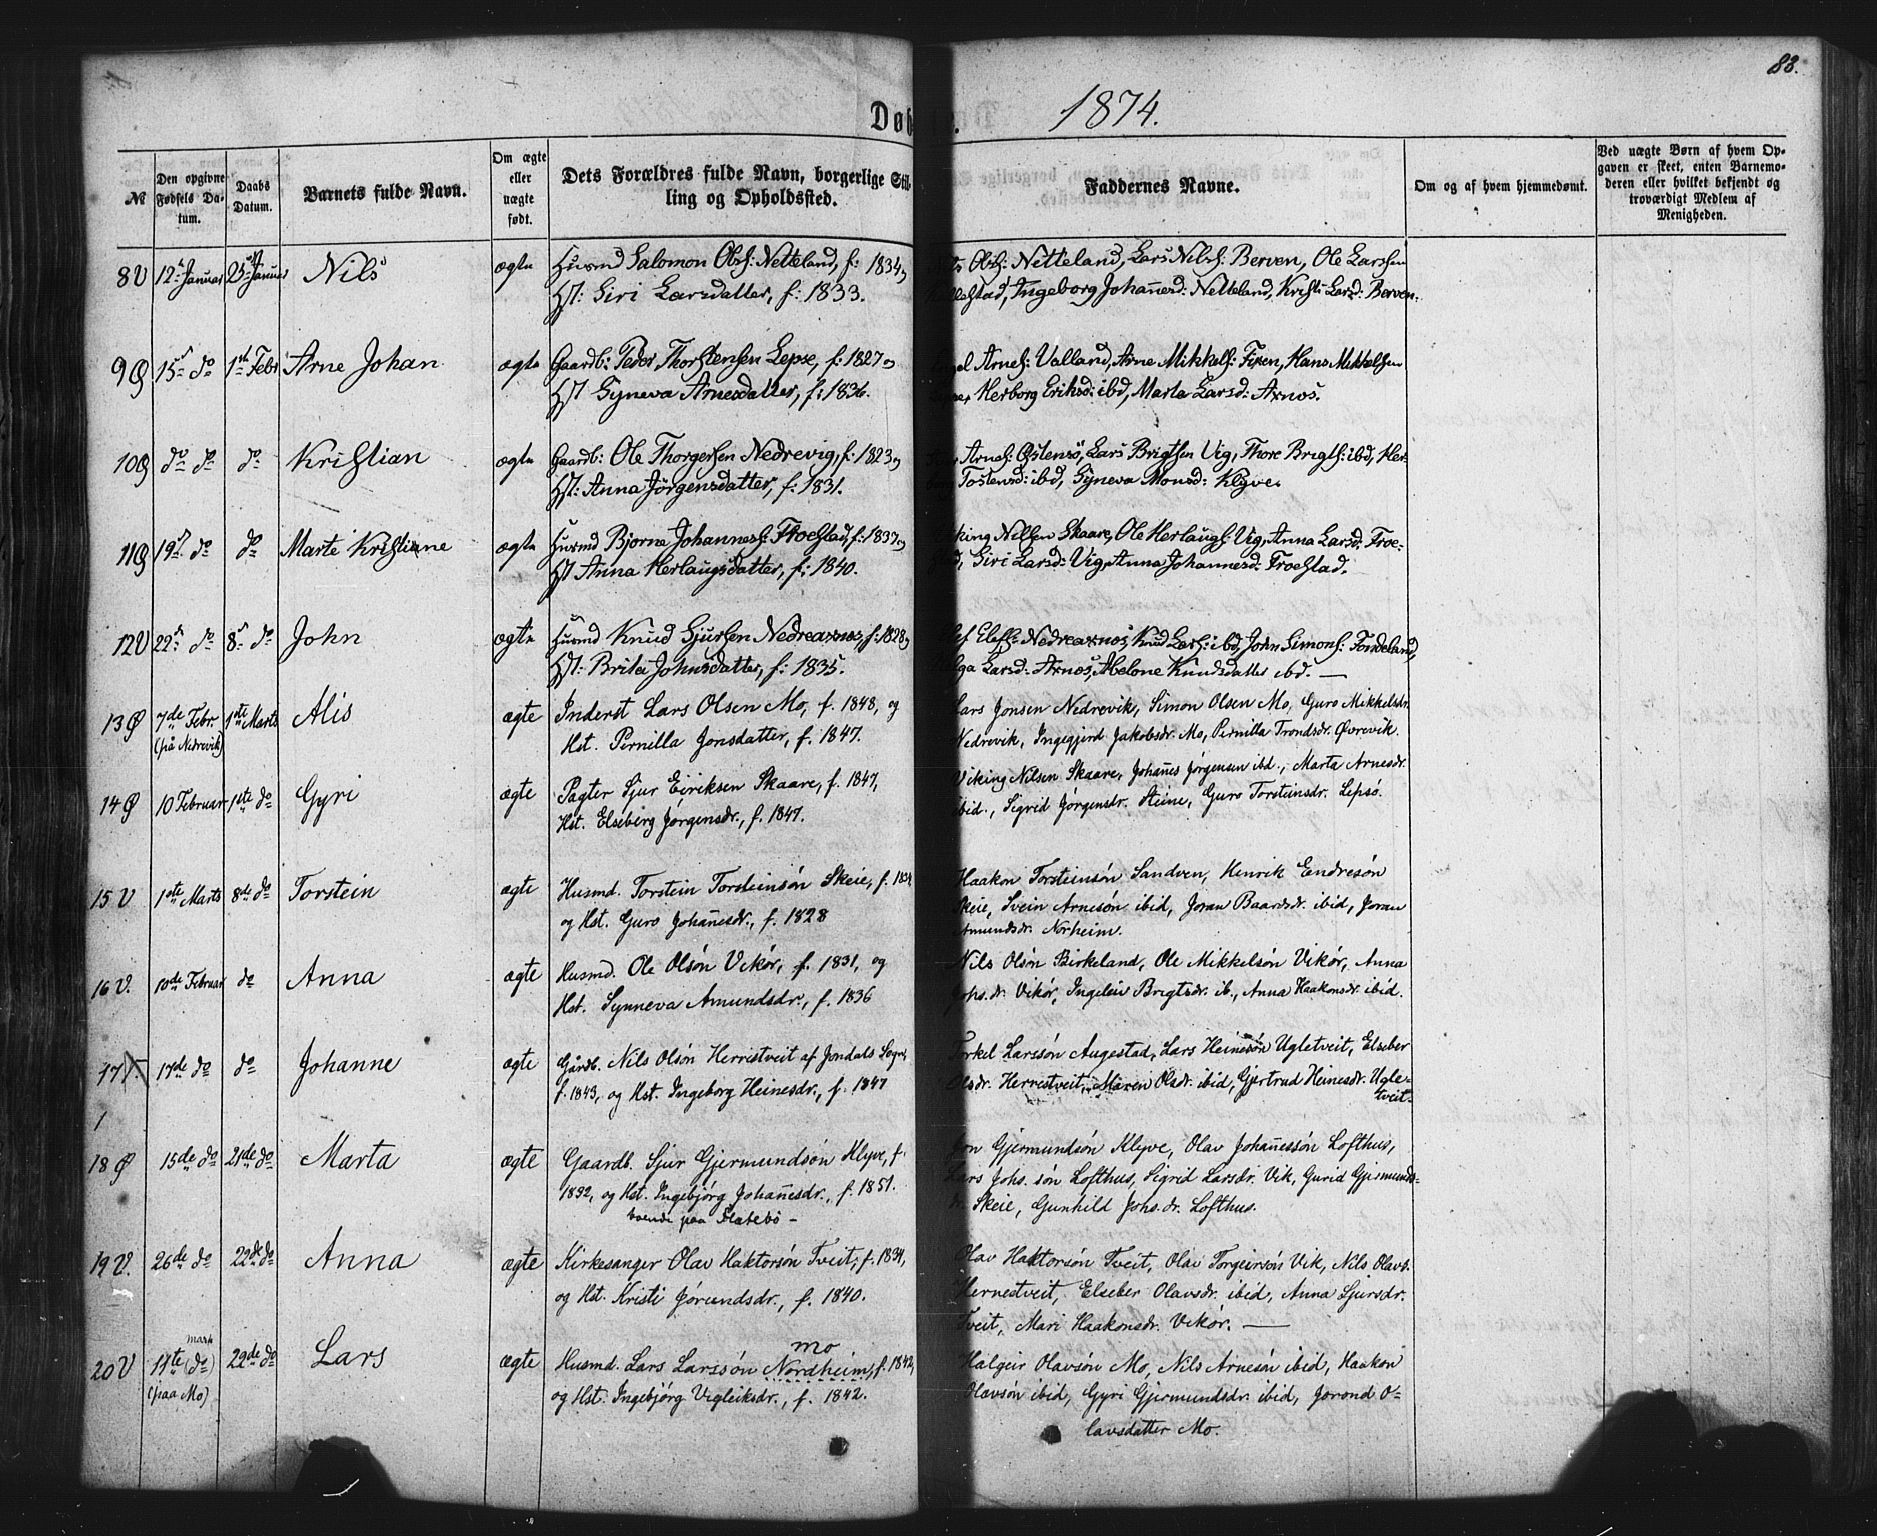 83.
Døb . 1874.
№
Den opgivne Fødsels Datum.
Daabs Datum.
Barnets fulde Navn.
Om ægte eller uægte født.
Dets Forældres fulde Navn, borgerlige Stilling og Opholdssted.
Faddernes Navne.
Om og af hvem hjemmedøbt.
Ved uægte Børn af hvem Opgaven er skeet, enten Barnemoderen eller hvilket bekjendt og troværdigt Medlem af Menigheden.
8 V 12te Januar 25de Januar Nils ægte Husmd Salomon Olss: Netteland, f: 1834 og Ols: Netteland, Lars Nilss: Berven, Ole Larssen
Hst: Siri Larsdatter, f: 1833. Ingeborg Johannesd: Netteland, Kristi Larsd: Berven.
9 Ø 15 do 1ste Febr Arne Johan ægte Gaardb: Peder Thorstensen Lepsø, f: 1827 og Arnes: Valland, Arne Mikkels: Fixen, Hans Mikkelsen
Hst Synneva Arnesdatter, f: 1836. Herborg Eriksd: ibd, Marta Larsd: Arnøs.
10 Ø do do do Kristian ægte Gaardb: Ole Thorgersen Nedrevig, f: 1823 og Arnes: Østensø, Lars Brigtsen Vig, Thore Brigts: ibd, Her-
Hst: Anna Jørgensdatter, f: 1831. Tostensd: ibd, Synneva Monsd: Klyve.
11 Ø 19 do do Marte Kristiane ægte Husmd Bjørne Johanness: Froestad, f: 1837 og Nilssen Skaare, Ole Herlaugs: Vig, Anna Larsd: Froe-
Hst Anna Herlaugsdatter, f: 1840. Siri Larsd: Vig, Anna Johannesd: Froestad.
12 V 22 do 8 do John ægte Husmd Knud Sjursen Nedrearnøs, f: 1828 og Elefs: Nedrearnøs, Knud Lars: ibd, John Simons: Fondeland,
Hst: Brita Johnsdatter, f: 1835. Larsd: Arnøs, Abelone Knudsdatter ibd. —
13 Ø 7de Febr. 1ste Marts Alis ægte Inderst Lars Olsen Mo, f. 1848, og Lars Jonsen Nedrevik, Simon Olsen Mo, Guro Mikkelsdr.
(på Nedrevik) Hst. Pernilla Jonsdatter, f. 1847. Nedrevik, Ingegjerd Jakobsdr. Mo, Pernilla Trondsdr. Øvrevik.
14 Ø 10 Februar 1ste do Gyri ægte Pagter Sjur Eiriksen Skaare, f. 1847, Viking Nilsen Skaare, Johanes Jørgensen ibd., Marta Arnesdr.
Hst. Elseberg Jørgensdr., f. 1847. ibid., Sigrid Jørgensdr. Steine, Guro Torsteinsdr. Lepsø.
15 V 1ste Marts 8de do Torstein ægte Husmd. Torstein Torsteinsøn Skeie, f. 1834 Haakon Torsteinsøn Sandven, Henrik Endresøn
og Hst. Guro Johanesdr., f. 1828 Skeie, Svein Arnesøn ibid, Joran Baardsdr. ibid, Joran
Amundsdr. Norheim.
16 V. 10de Februar do Anna ægte Husmd. Ole Olsøn Vikør, f. 1831, og Nils Olsøn Birkeland, Ole Mikkelsøn Vikør, Anna
Hst. Synneva Amundsdr., f. 1836 Johs. dr. Vikør, Ingeleiv Brigtsdr. ib., Anna Haakonsdr. ibid.
17 V. 17de do do Johanne ægte Gårdb. Nils Olsøn Herristveit af Jondals Sogn, Torkel Larssøn Augestad, Lars Heinesøn Ugletveit, Elseber
f. 1843, og Hst. Ingeborg Heinesdr., f. 1847 Olsdr. Herrestveit, Maren Olsdr. ibid, Gjertrud Heinesdr. Ugle-
tveit-
18 Ø 15de do 21de do Marta ægte Gaardb. Sjur Gjermundsøn Klyve, f. Jon Gjermundsøn Klyve, Olav Johanessøn Lofthus,
1832, og Hst. Ingebjørg Johanesdr., f. 1851. Lars Johs. søn Lofthus, Sigrid Larsdr. Vik, Gurid Gjermunds-
boende paa Flatebø - dr. Skeie, Gunhild Johs. dr. Lofthus.
19 V. 26de do 22de do Anna ægte Kirkesanger Olav Haktorsøn Tveit, f. 1834, Olav Haktorsøn Tveit, Olav Torgeirsøn Vik, Nils Olavs.
og Hst. Kristi Jørundsdr., f. 1840. Hernestveit, Elseber Olavsdr. ibid, Anna Sjursdr.
Tveit, Mari Haakonsdr. Vikør. —
20 V 11te (do) mark 22de do Lars ægte Husmd. Lars Larssøn Nordheim, mo f. 1842, Halgeir Olavsøn Mo, Nils Arnesøn ibid, Haakon
(paa Mo) og Hst. Ingebjørg Vigleiksdr., f. 1842. Olavsøn ibid, Gyri Gjermundsdr. ibid, Jorond O-
lavsdatter Mo.